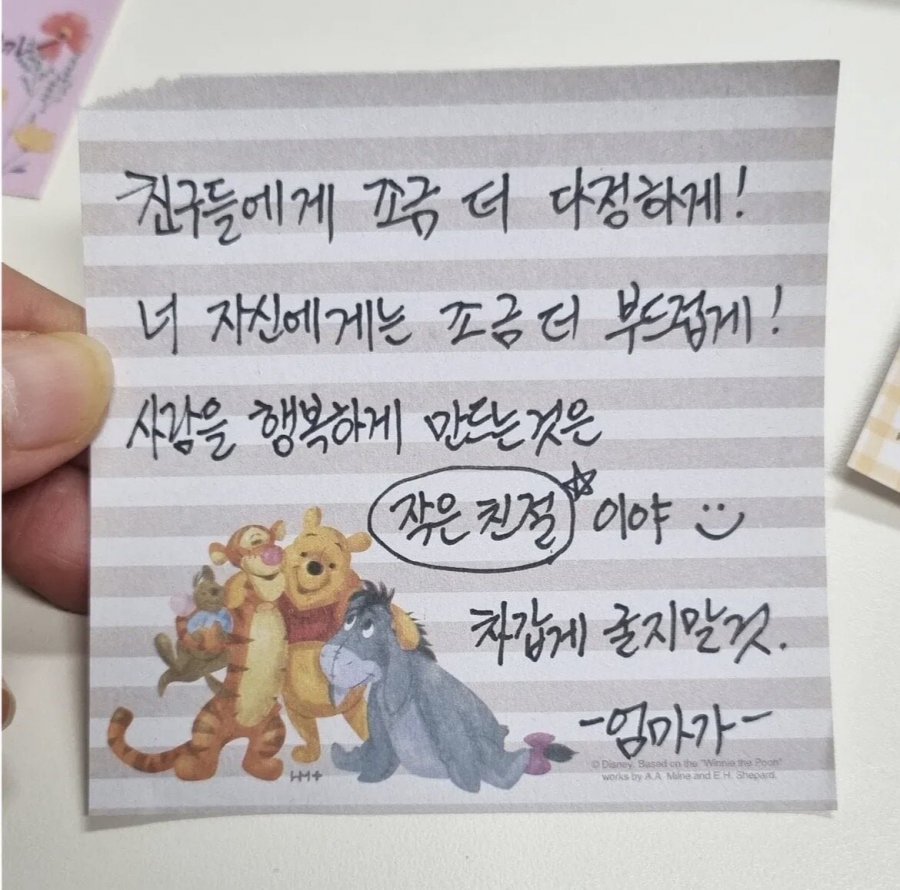 친구들에게 조금 더 다정하게!
너 자신에게는 조금 더 부드럽게!
사람을 행복하게 만드는것은
작은 친절☆이야 :)
차갑게 굴지말것.
-엄마가-
© Disney. Based on the "Winnie the Pooh"
works by A.A. Milne and E.H. Shepard.